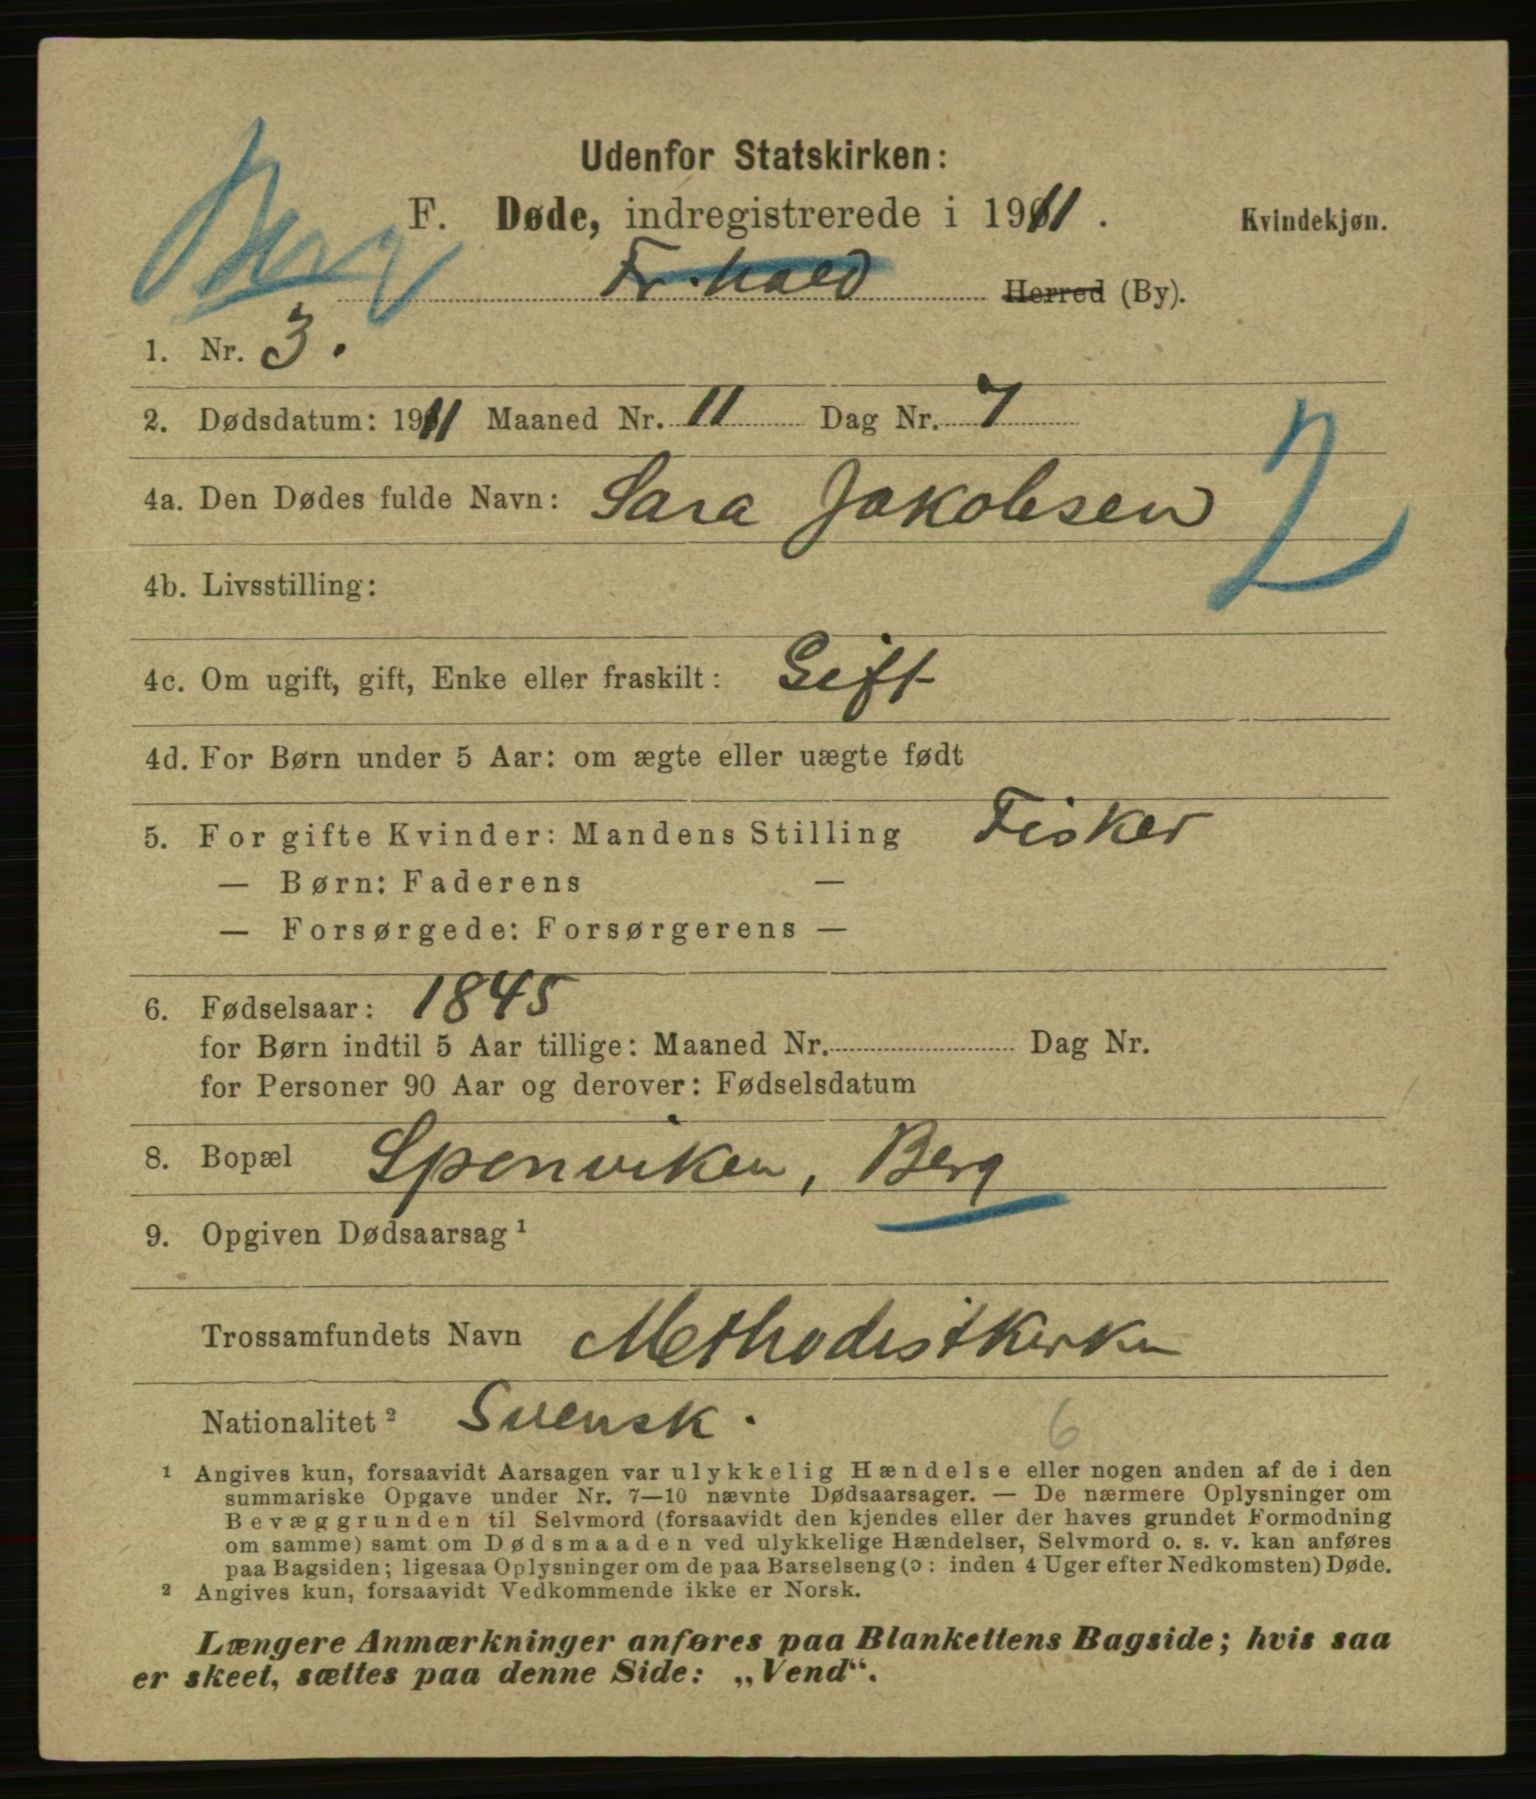 Udenfor Statskirken:
Berg
F. Døde, indregistrerede i 1911. Kvindekjøn.
Fr.hald Herred (By).
1. Nr. 3.
2. Dødsdatum: 1911 Maaned Nr. 11 Dag Nr. 7
4a. Den Dødes fulde Navn: Sara Jakobsen
2
4b. Livsstilling:
4c. Om ugift, gift, Enke eller fraskilt: Gift
4d. For Børn under 5 Aar: om ægte eller uægte født
5. For gifte Kvinder: Mandens Stilling Fisker
— Børn: Faderens —
— Forsørgede: Forsørgerens —
6. Fødselsaar: 1845
for Børn indtil 5 Aar tillige: Maaned Nr. Dag Nr.
for Personer 90 Aar og derover: Fødselsdatum
8. Bopæl Sponviken, Berg
9. Opgiven Dødsaarsag ¹
Trossamfundets Navn Methodistkirken
Nationalitet ² Svensk.
6
¹ Angives kun, forsaavidt Aarsagen var ulykkelig Hændelse eller nogen anden af de i den
summariske Opgave under Nr. 7—10 nævnte Dødsaarsager. — De nærmere Oplysninger om
Bevæggrunden til Selvmord (forsaavidt den kjendes eller der haves grundet Formodning
om samme) samt om Dødsmaaden ved ulykkelige Hændelser, Selvmord o. s. v. kan anføres
paa Bagsiden; ligesaa Oplysninger om de paa Barselseng (ɔ: inden 4 Uger efter Nedkomsten) Døde.
² Angives kun, forsaavidt Vedkommende ikke er Norsk.
Længere Anmærkninger anføres paa Blankettens Bagside; hvis saa
er skeet, sættes paa denne Side: „Vend“.